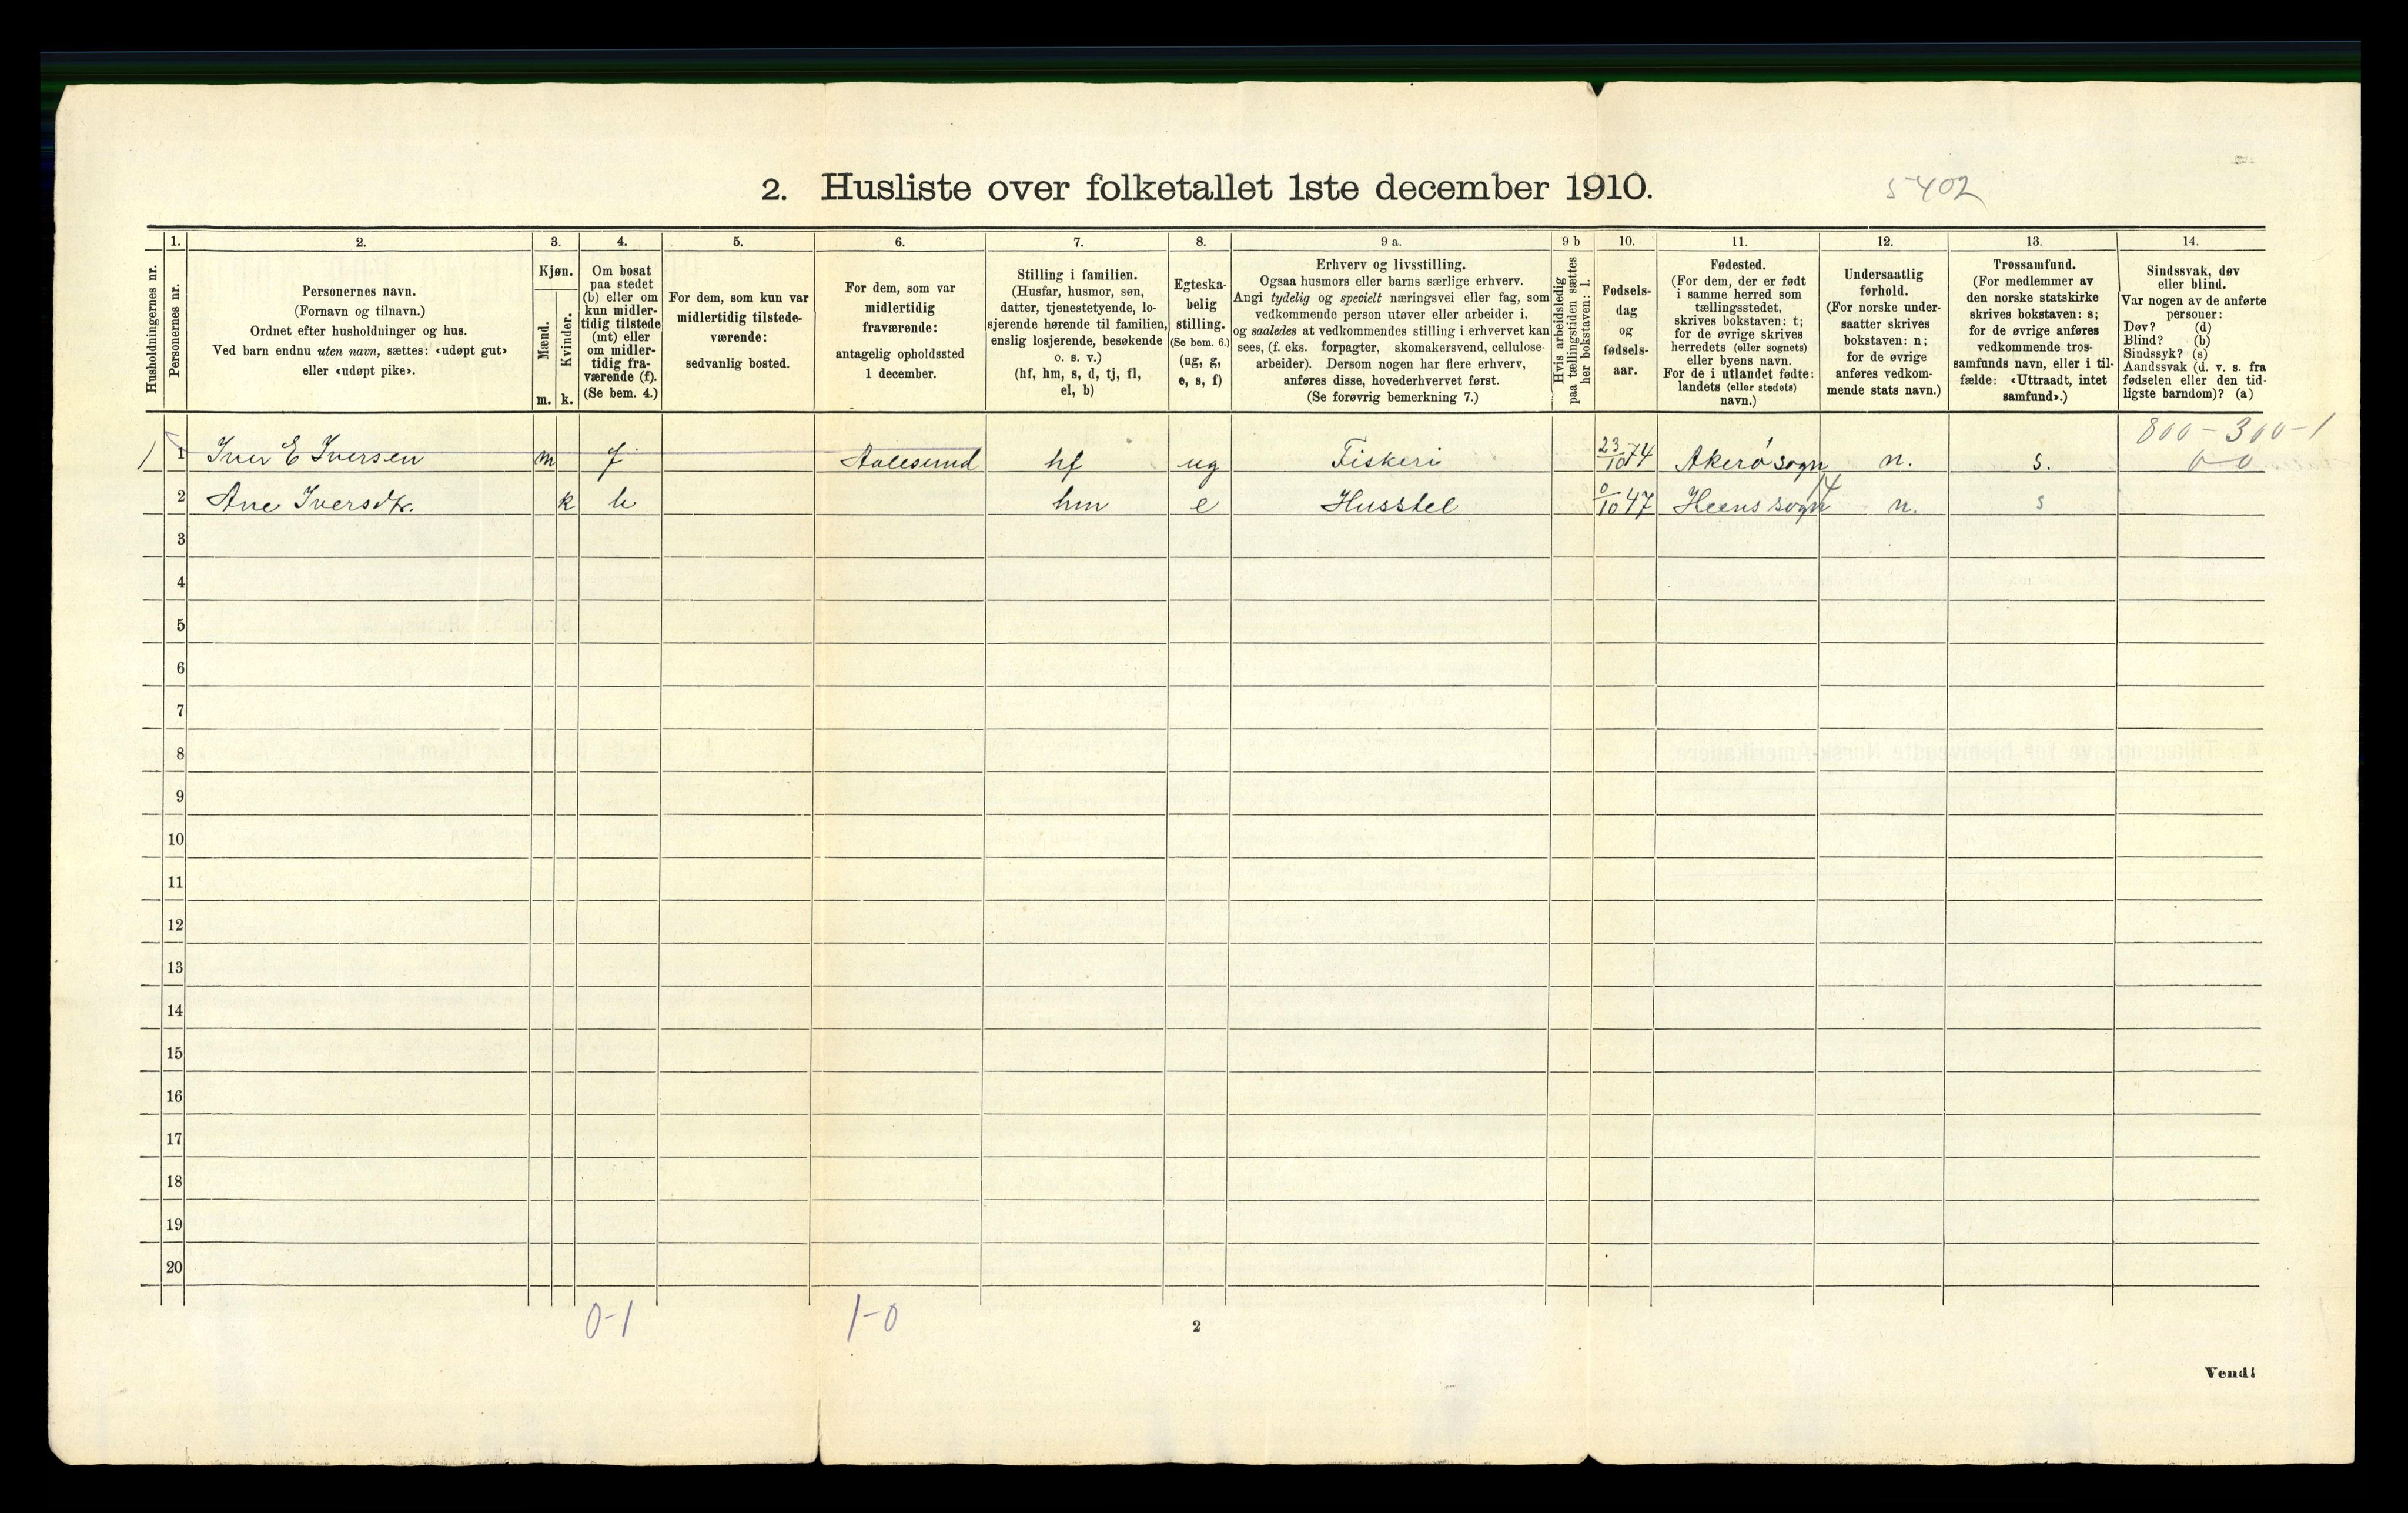 2. Husliste over folketallet 1ste december 1910.
5402
1. 2. 3. 4. 5. 6. 7. 8. 9 a. 9 b 10. 11. 12. 13. 14.
Husholdningernes nr.
Personernes nr.
Personernes navn.
(Fornavn og tilnavn.)
Ordnet efter husholdninger og hus.
Ved barn endnu uten navn, sættes: «udøpt gut»
eller «udøpt pike».
Kjøn.
Mænd.
Kvinder.
m. k.
Om bosat
paa stedet
(b) eller om
kun midler-
tidig tilstede
(mt) eller
om midler-
tidig fra-
værende (f).
(Se bem. 4.)
For dem, som kun var
midlertidig tilstede-
værende:
sedvanlig bosted.
For dem, som var
midlertidig
fraværende:
antagelig opholdssted
1 december.
Stilling i familien.
(Husfar, husmor, søn,
datter, tjenestetyende, lo-
sjerende hørende til familien,
enslig losjerende, besøkende
o. s. v.)
(hf, hm, s, d, tj, fl,
el, b)
Egteska-
belig
stilling.
(Se bem. 6.)
(ug, g,
e, s, f)
Erhverv og livsstilling.
Ogsaa husmors eller barns særlige erhverv.
Angi tydelig og specielt næringsvei eller fag, som
vedkommende person utøver eller arbeider i,
og saaledes at vedkommendes stilling i erhvervet kan
sees, (f. eks. forpagter, skomakersvend, cellulose-
arbeider). Dersom nogen har flere erhverv,
anføres disse, hovederhvervet først.
(Se forøvrig bemerkning 7.)
Hvis arbeidsledig
paa tællingstiden sættes
her bokstaven: l.
Fødsels-
dag
og
fødsels-
aar.
Fødested.
(For dem, der er født
i samme herred som
tællingsstedet,
skrives bokstaven: t;
for de øvrige skrives
herredets (eller sognets)
eller byens navn.
For de i utlandet fødte:
landets (eller stedets)
navn.)
Undersaatlig
forhold.
(For norske under-
saatter skrives
bokstaven: n;
for de øvrige
anføres vedkom-
mende stats navn.)
Trossamfund.
(For medlemmer av
den norske statskirke
skrives bokstaven: s;
for de øvrige anføres
vedkommende tros-
samfunds navn, eller i til-
fælde: «Uttraadt, intet
samfund».)
Sindssvak, døv
eller blind.
Var nogen av de anførte
personer:
Døv? (d)
Blind? (b)
Sindssyk? (s)
Aandssvak (d. v. s. fra
fødselen eller den tid-
ligste barndom)? (a)
800-300-1
1 1 Iver E Iversen m f Aalesund hf ug Fiskeri 23/10 74 Akerø sogn n. s. 0-0
14
2 Ane Iversdtr. k b hm e Husstel 0/10 47 Heens sogn n. s
3
4
5
6
7
8
9
10
11
12
13
14
15
16
17
18
19
20
0-1 1-0
2
Vend!